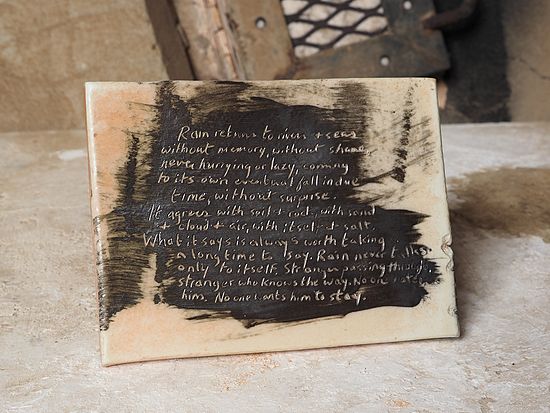 Rain returns to rivers + seas
without memory, without shame,
never hurrying or lazy, coming
to its own eventual fall in due
time, without surprise.
It agrees with soil + rock, with sand
+ cloud + air, with itself + salt.
What it says is always worth taking
a long time to say. Rain never talks
only to itself. Stranger passing through,
stranger who knows the way. No one
him. No one wants him to stay.